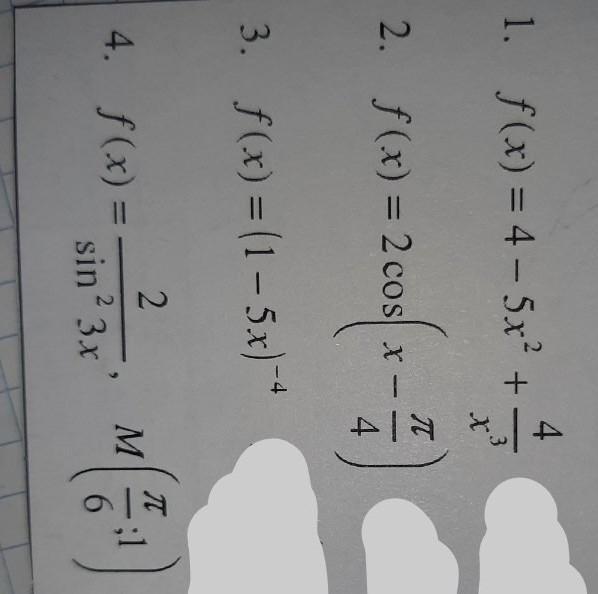 1. f(x) = 4 − 5x² + 4/x³
2. f(x) = 2 cos(x − π/4)
3. f(x) = (1 − 5x)⁻⁴
4. f(x) = 2/sin² 3x, M(π/6;1)